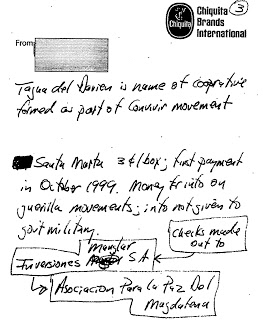 Chiquita
Chiquita
Brands
International
3
From
Tagua del Darien is name of cooperative
formed as part of Convivir movement
Santa Marta 3 ¢/box; first payment
in October 1999. Money for info on
guerilla movements; info not given to
gov't military.
checks made
out to
Inversiones Manglar SA
Asociacion Para La Paz Del
Magdalena